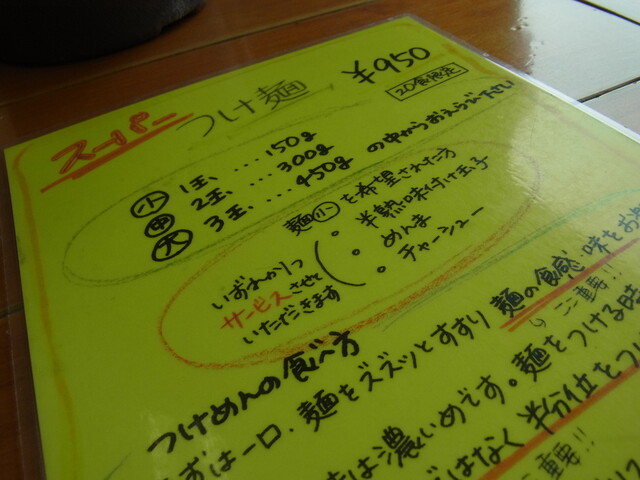 スーパー つけ麺 ¥950
20食限定
小 1玉、…150g
中 2玉、…300g
大 3玉、…450g
の中からお えらび下さい
麺小を希望された方
・半熟味付け玉子
・めんま
・チャーシュー
いずれか1つ
サービスさせて
いただきます
つけめんの食べ方
ずは一口、麺をズズッとすすり 麺の食感・味をお
ここ重要!!
は濃いめです。麺をつける時
はなく 半分位をつ
重要!!